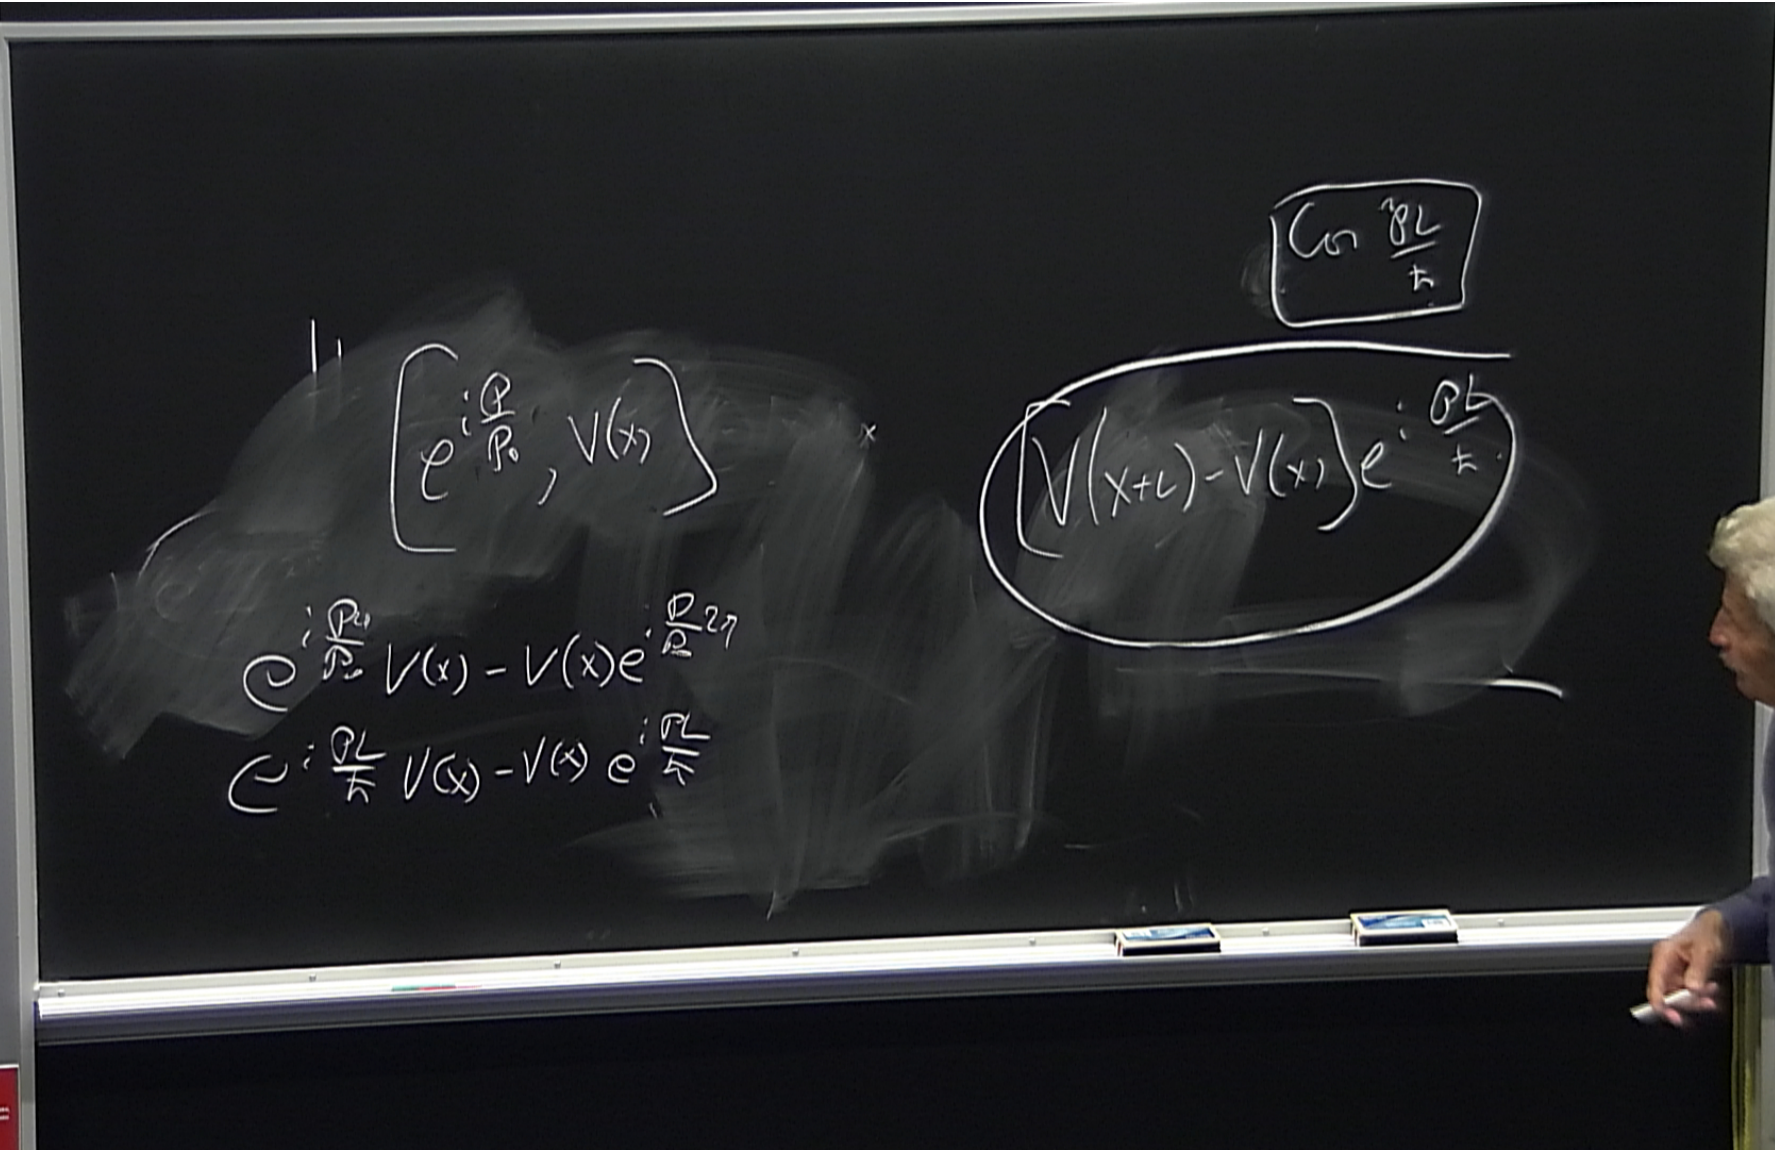 [e^{i P/P₀}, V(x)]
e^{i P2π/P₀} V(x) - V(x) e^{i P/P 2π}
e^{i PL/ħ} V(x) - V(x) e^{i PL/ħ}
Cos PL/ħ
[V(x+L) - V(x)] e^{i PL/ħ}